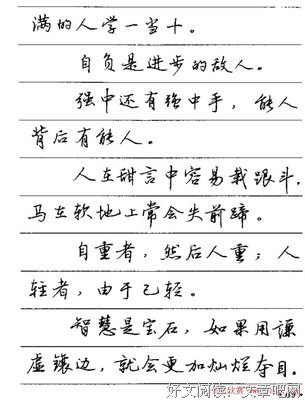 满的人学一当十。
自负是进步的敌人。
强中还有强中手，能人
背后有能人。
人在甜言中容易栽跟斗，
马在软地上常会失前蹄。
自重者，然后人重；人
轻者，由于己轻。
智慧是宝石，如果用谦
虚镶边，就会更加灿烂夺目。
好文阅读-文章吧网